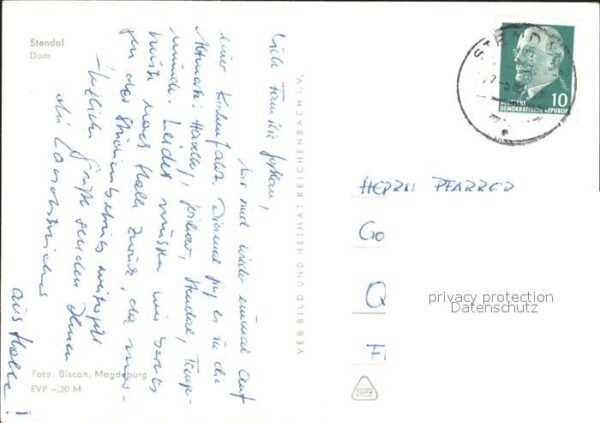 Stendal
Dom
Liebe Familie
wir sind wieder einmal auf
einer Kirchenfahrt. Diesmal ging es in die
Altmark: Havelberg, Stendal, Tanger-
münde. Leider müssen wir bereits
heute nach Halle zurück, da mor-
gen der Studienbetrieb weitergeht.
Herzliche Grüße senden Ihnen
die
aus Halle.
Foto: Biscan, Magdeburg
EVP –,20 M
VEB BILD UND HEIMAT REICHENBACH I. V.
STENDAL
10
DEUTSCHE
DEMOKRATISCHE REPUBLIK
HERRN PFARRER
privacy protection
Datenschutz